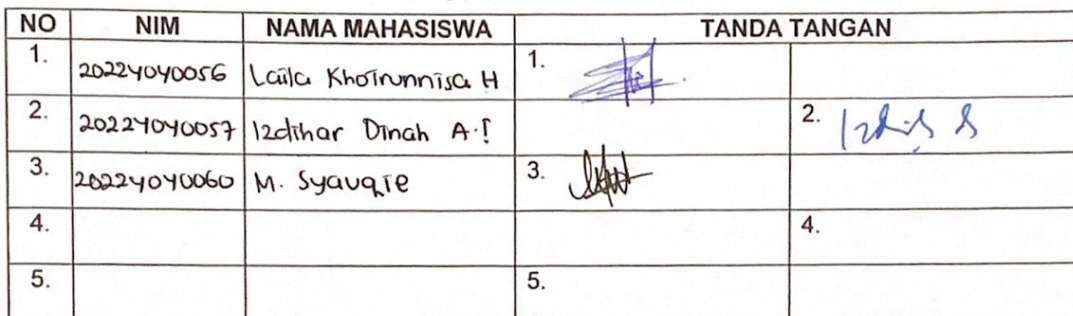 NO NIM NAMA MAHASISWA TANDA TANGAN
1. 20224040056 Laila Khoirunnisa H 1.
2. 20224040057 Izdihar Dinah A.I 2.
3. 20224040060 M. Syauqie 3.
4. 4.
5. 5.